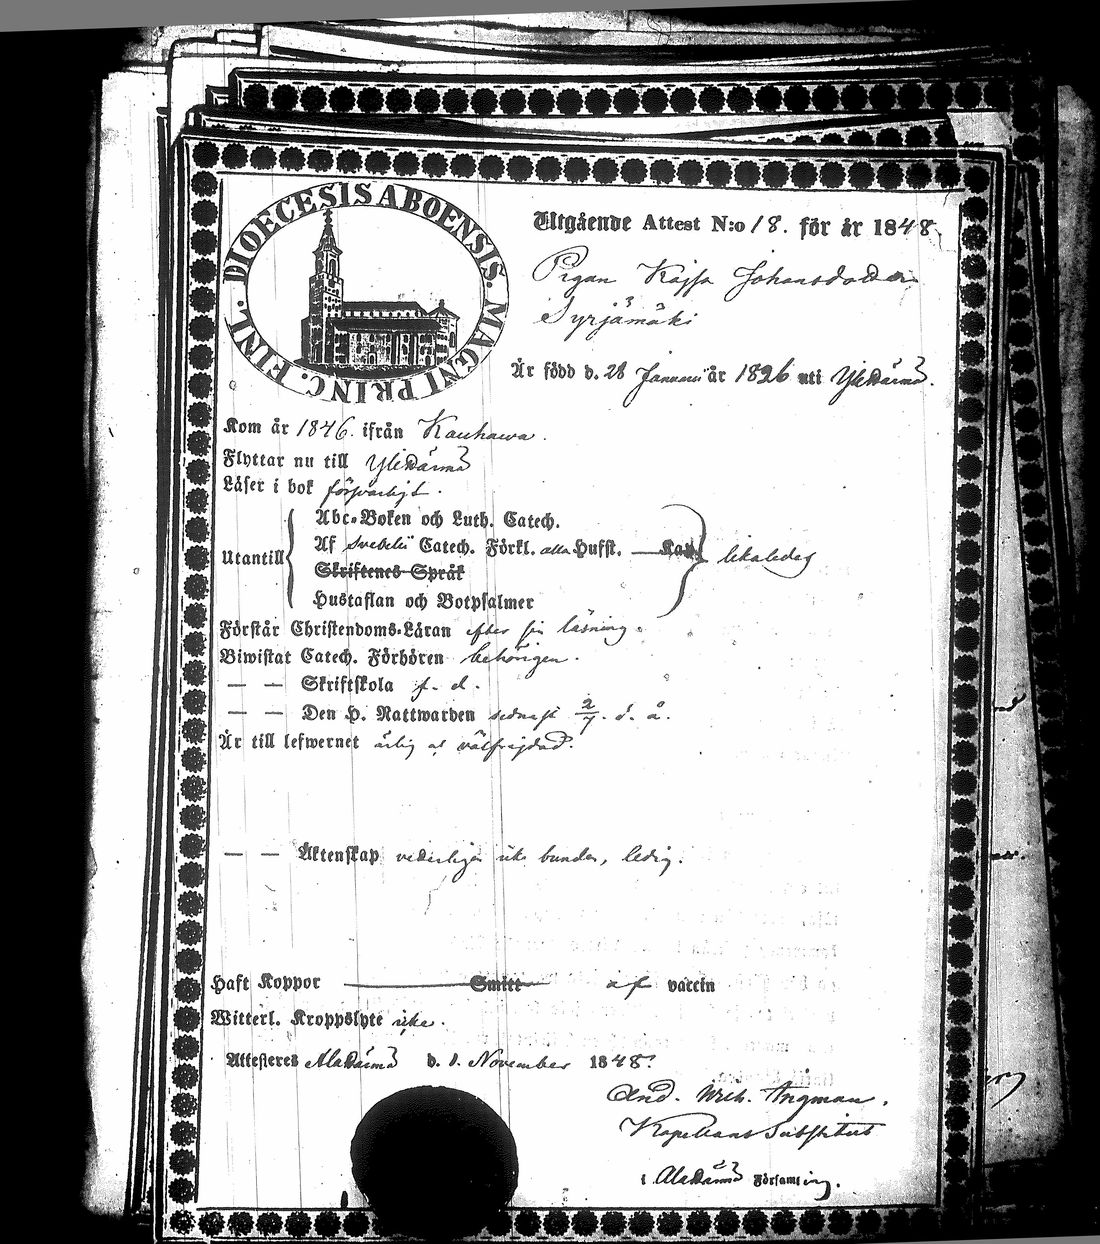 DIOECESIS ABOENSIS. MAGNI PRINC. FINL.
Utgående Attest N:o 18. för år 1848.
Pigan Kajsa Johansdotter
Syrjämäki
Är född d. 28 Januarii år 1826 uti Ylihärmä.
Kom år 1846. ifrån Kauhawa.
Flyttar nu till Ylihärmä
Läser i bok försvarligt.
Abc-Boken och Luth. Catech.
Af Svebelii Catech. Förkl. alla Hufst. Kap.
Utantill likaledes
Skriftenes Språk
Hustaflan och Botpsalmer
Förstår Christendoms-Läran efter sin läsning.
Biwistat Catech. Förhören behörigen.
— — Skriftskola f. d.
— — Den H. Nattwarden sednast 2/7. d. å.
Är till lefwernet ärlig och välfrejdad.
— — Äktenskap vederligen icke bunden, ledig.
Haft Koppor Smitt af vaccin
Witterl. Kroppslyte icke.
Attesteras Alahärmä d. 1. November 1848.
And. Wilh. Ingman.
Kapellans Substitut
i Alahärmä Församling.